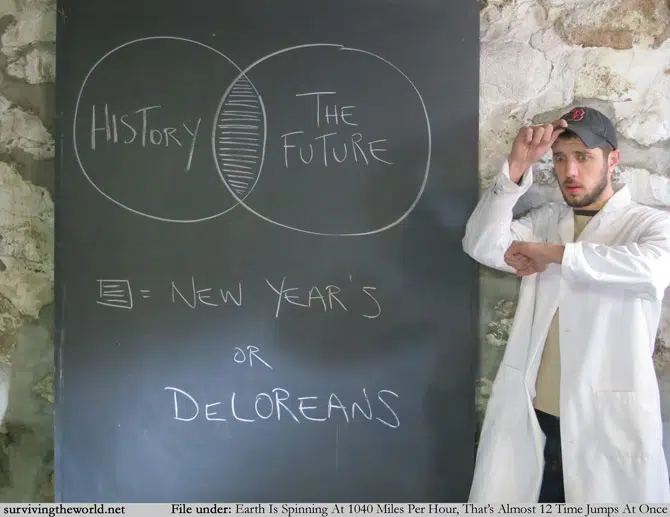 HISTORY
THE
FUTURE
= NEW YEAR'S
OR
DELOREANS
B
survivingtheworld.net File under: Earth Is Spinning At 1040 Miles Per Hour, That's Almost 12 Time Jumps At Once.